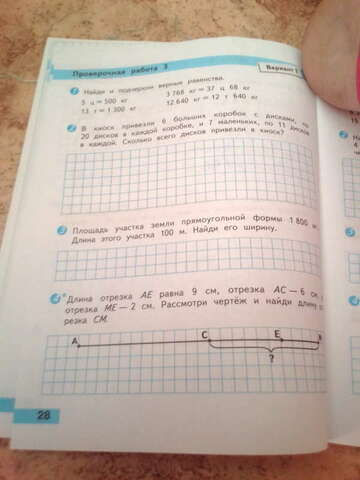 Проверочная работа 3
Вариант
1 Найди и подчеркни верные равенства.
5 ц = 500 кг 3 768 кг = 37 ц 68 кг
13 т = 1 300 кг 12 640 кг = 12 т 640 кг
2 В киоск привезли 6 больших коробок с дисками, по
20 дисков в каждой коробке, и 7 маленьких, по 11 дисков
в каждой. Сколько всего дисков привезли в киоск?
3 Площадь участка земли прямоугольной формы 1 800 м
Длина этого участка 100 м. Найди его ширину.
4 * Длина отрезка AE равна 9 см, отрезка AC — 6 см,
отрезка ME — 2 см. Рассмотри чертёж и найди длину
резка CM.
A C E
?
28